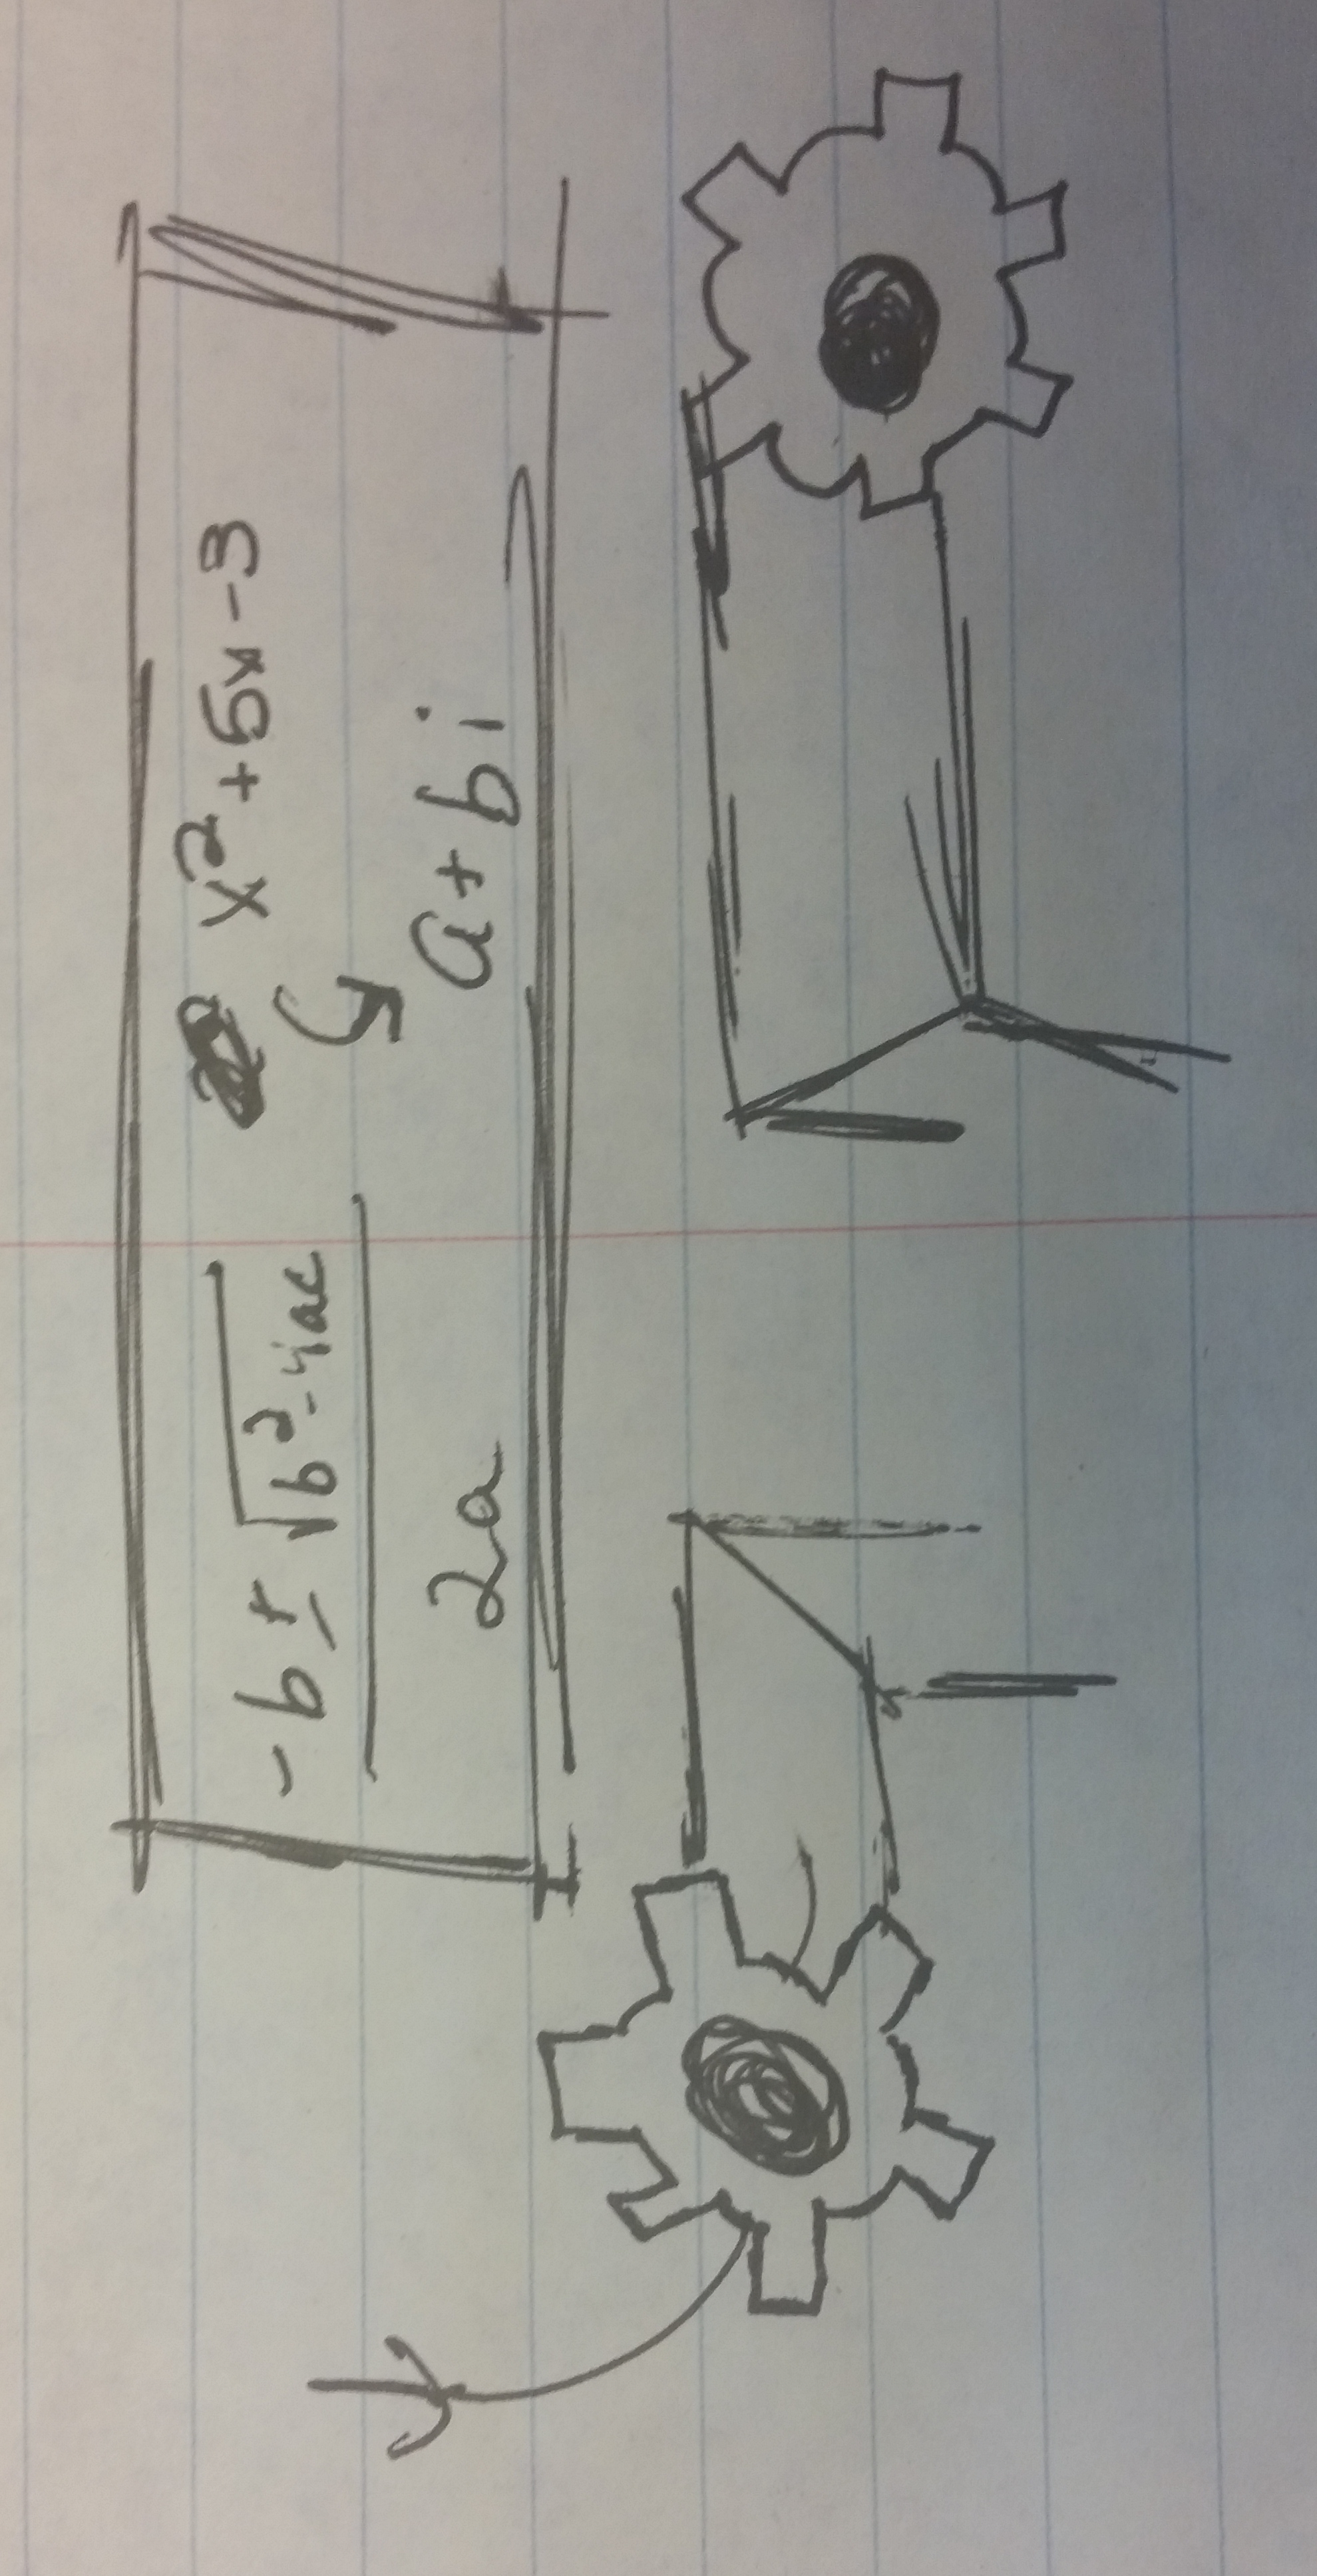 -b ± √b²-4ac
2a
x² + 5x - 3
y
a + bi